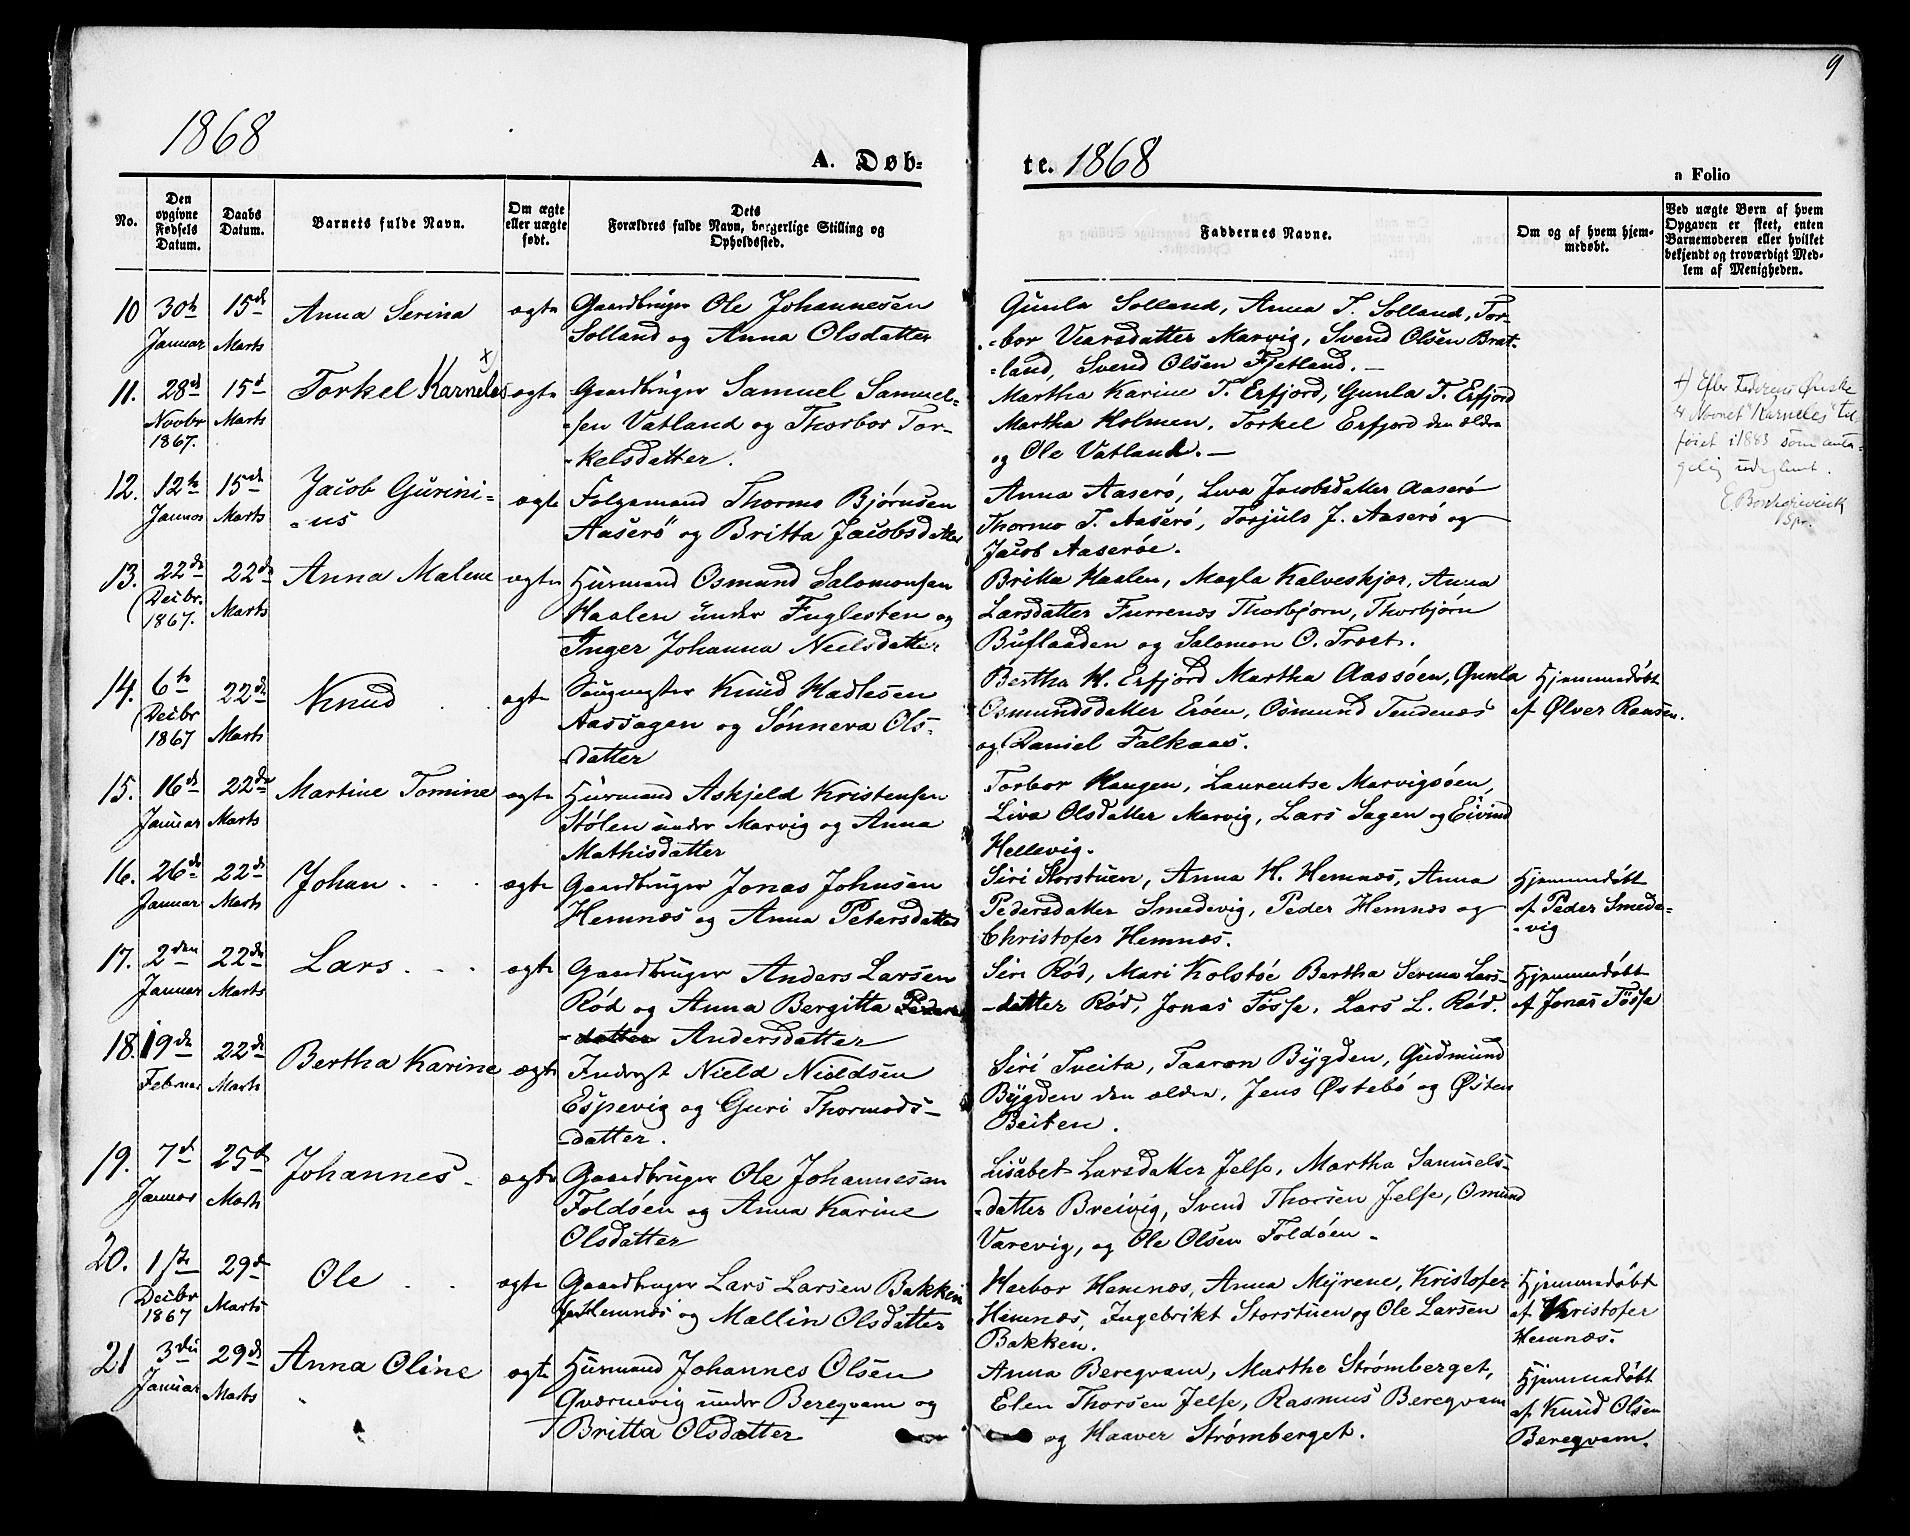 9
1868
A. Døb-
te. 1868
a Folio
No.
Den opgivne Fødsels Datum.
Daabs Datum.
Barnets fulde Navn.
Om ægte eller uægte født.
Dets Forældres fulde Navn, borgerlige Stilling og Opholdssted.
Faddernes Navne.
Om og af hvem hjem-
medøbt.
Ved uægte Børn af hvem
Opgaven er skeet, enten
Barnemoderen eller hvilket
bekjendt og troværdigt Med-
lem af Menigheden.
10 30te Januar 15de Marts Anna Serina ægte
Gaardbruger Ole Johannesen
Solland og Anna Olsdatter
Gunla Solland, Anna T. Solland, Tor-
-bor Marvig, Svend Olsen Brat-
-land, Svend Olsen Fjetland. -
11. 28de Novbr 1867. 15de Marts Torkel Karneles x) ægte
Gaardbruger Samuel Samuel-
-sen Vatland og Thorbor Tor-
-kelsdatter.
Martha Karine T. Erfjord, Gunla T. Erfjord
Martha Holmen, Torkel Erfjord den ældre
og Ole Vatland. -
+) Efter Faderens Ønske
er Navnet "Karneles" til
føiet i 1883 som
gelig udeglemt.
12. 12te Januar 15de Marts Jacob Gurini-
-us ægte
Folgemand Thormo Bjørnsen
Aaserø og Britta Jacobsdatter
Anna Aaserø, Liva Jacobsdatter Aaserø
Thormo T. Aaserø, Torjuls J. Aaserø og
Jacob Aaserøe.
13. 22de Decbr. 1867. 22de Marts Anna Malene ægte
Husmand Osmund Salomonsen
Haalen under Fuglesten og
Inger Johanna Nielsdatter
Brita Haalen, Magla Kalveskjær, Anna
Larsdatter Furrenæs Thorbjørn, Thorbjørn
Buflaaden og Salomon O. Træet.
14. 6te Decbr 1867 22de Marts Knud ægte
Knud Hadlesen
Aassagen og Sønneva Ols-
-datter
Bertha H. Erfjord Martha Aassøen, Gunla
Osmundsdatter Erøen, Osmund Tendenæs
og Daniel Falkaas.
Hjemmedøbt
af Ølver Ransen.
15. 16de Januar 22de Marts Martine Tomine ægte
Husmand Askjeld Kristensen
Stølen under Marvig og Anna
Mathisdatter
Torbor Haugen, Laurentse Marvigsøen,
Liva Olsdatter Marvig, Lars Sagen og Eivind
Hellevig.
16. 26de Januar 22de Marts Johan ægte
Gaardbruger Jonas Johnsen
Hemnæs og Anna Petersdatter
Siri Storstuen, Anna H. Hemnæs, Anna
Pedersdatter Smedevig, Peder Hemnæs og
Christofer Hemnæs.
Hjemmedøbt
af Peder Smede-
-vig
17. 2den Januar 22de Marts Lars ægte
Gaardbruger Anders Larsen
Rød og Anna Bergitta Peders
-datter Andersdatter
Siri Rød, Mari Kolstøe Bertha Serina Lars-
-datter Rød, Jonas Tøsse, Lars L. Rød.
Hjemmedøbt
af Jonas Tøsse
18. 19de Februar 22de Marts Bertha Karine ægte
Inderst Nield Nieldsen
Espevig og Guri Thormods-
-datter.
Siri Tveita, Taaran Bygden, Gudmund
Bygden den ældre, Jens Østebø og Østen
Beiten.
19. 7de Januar 25de Marts Johannes ægte
Gaardbruger Ole Johannesen
Foldøen og Anna Karine
Olsdatter
Lisabet Larsdatter Jelse, Martha Samuels-
-datter Breivig, Svend Thorsen Jelse, Omund
Varevig, og Ole Olsen Foldøen -
20. 1ste Decbr 1867 29de Marts Ole ægte
Gaardbruger Lars Larsen Bakken
Hemnæs og Mallin Olsdatter
Herbor Hemnæs, Anna Myrene, Kristofer
Hemnæs, Ingebrikt Storstuen og Ole Larsen
Bakken.
Hjemmedøbt
af Kristofer
Hemnæs.
21 3die Januar 29de Marts Anna Oline ægte
Husmand Johannes Olsen
Qværnevig under Bereqvam og
Britta Olsdatter
Anna Bereqvam, Marthe Strømberget,
Elen Thorsen Jelse, Rasmus Bereqvam
og Haaver Strømberget.
Hjemmedøbt
af Knud Olsen
Bereqvam.